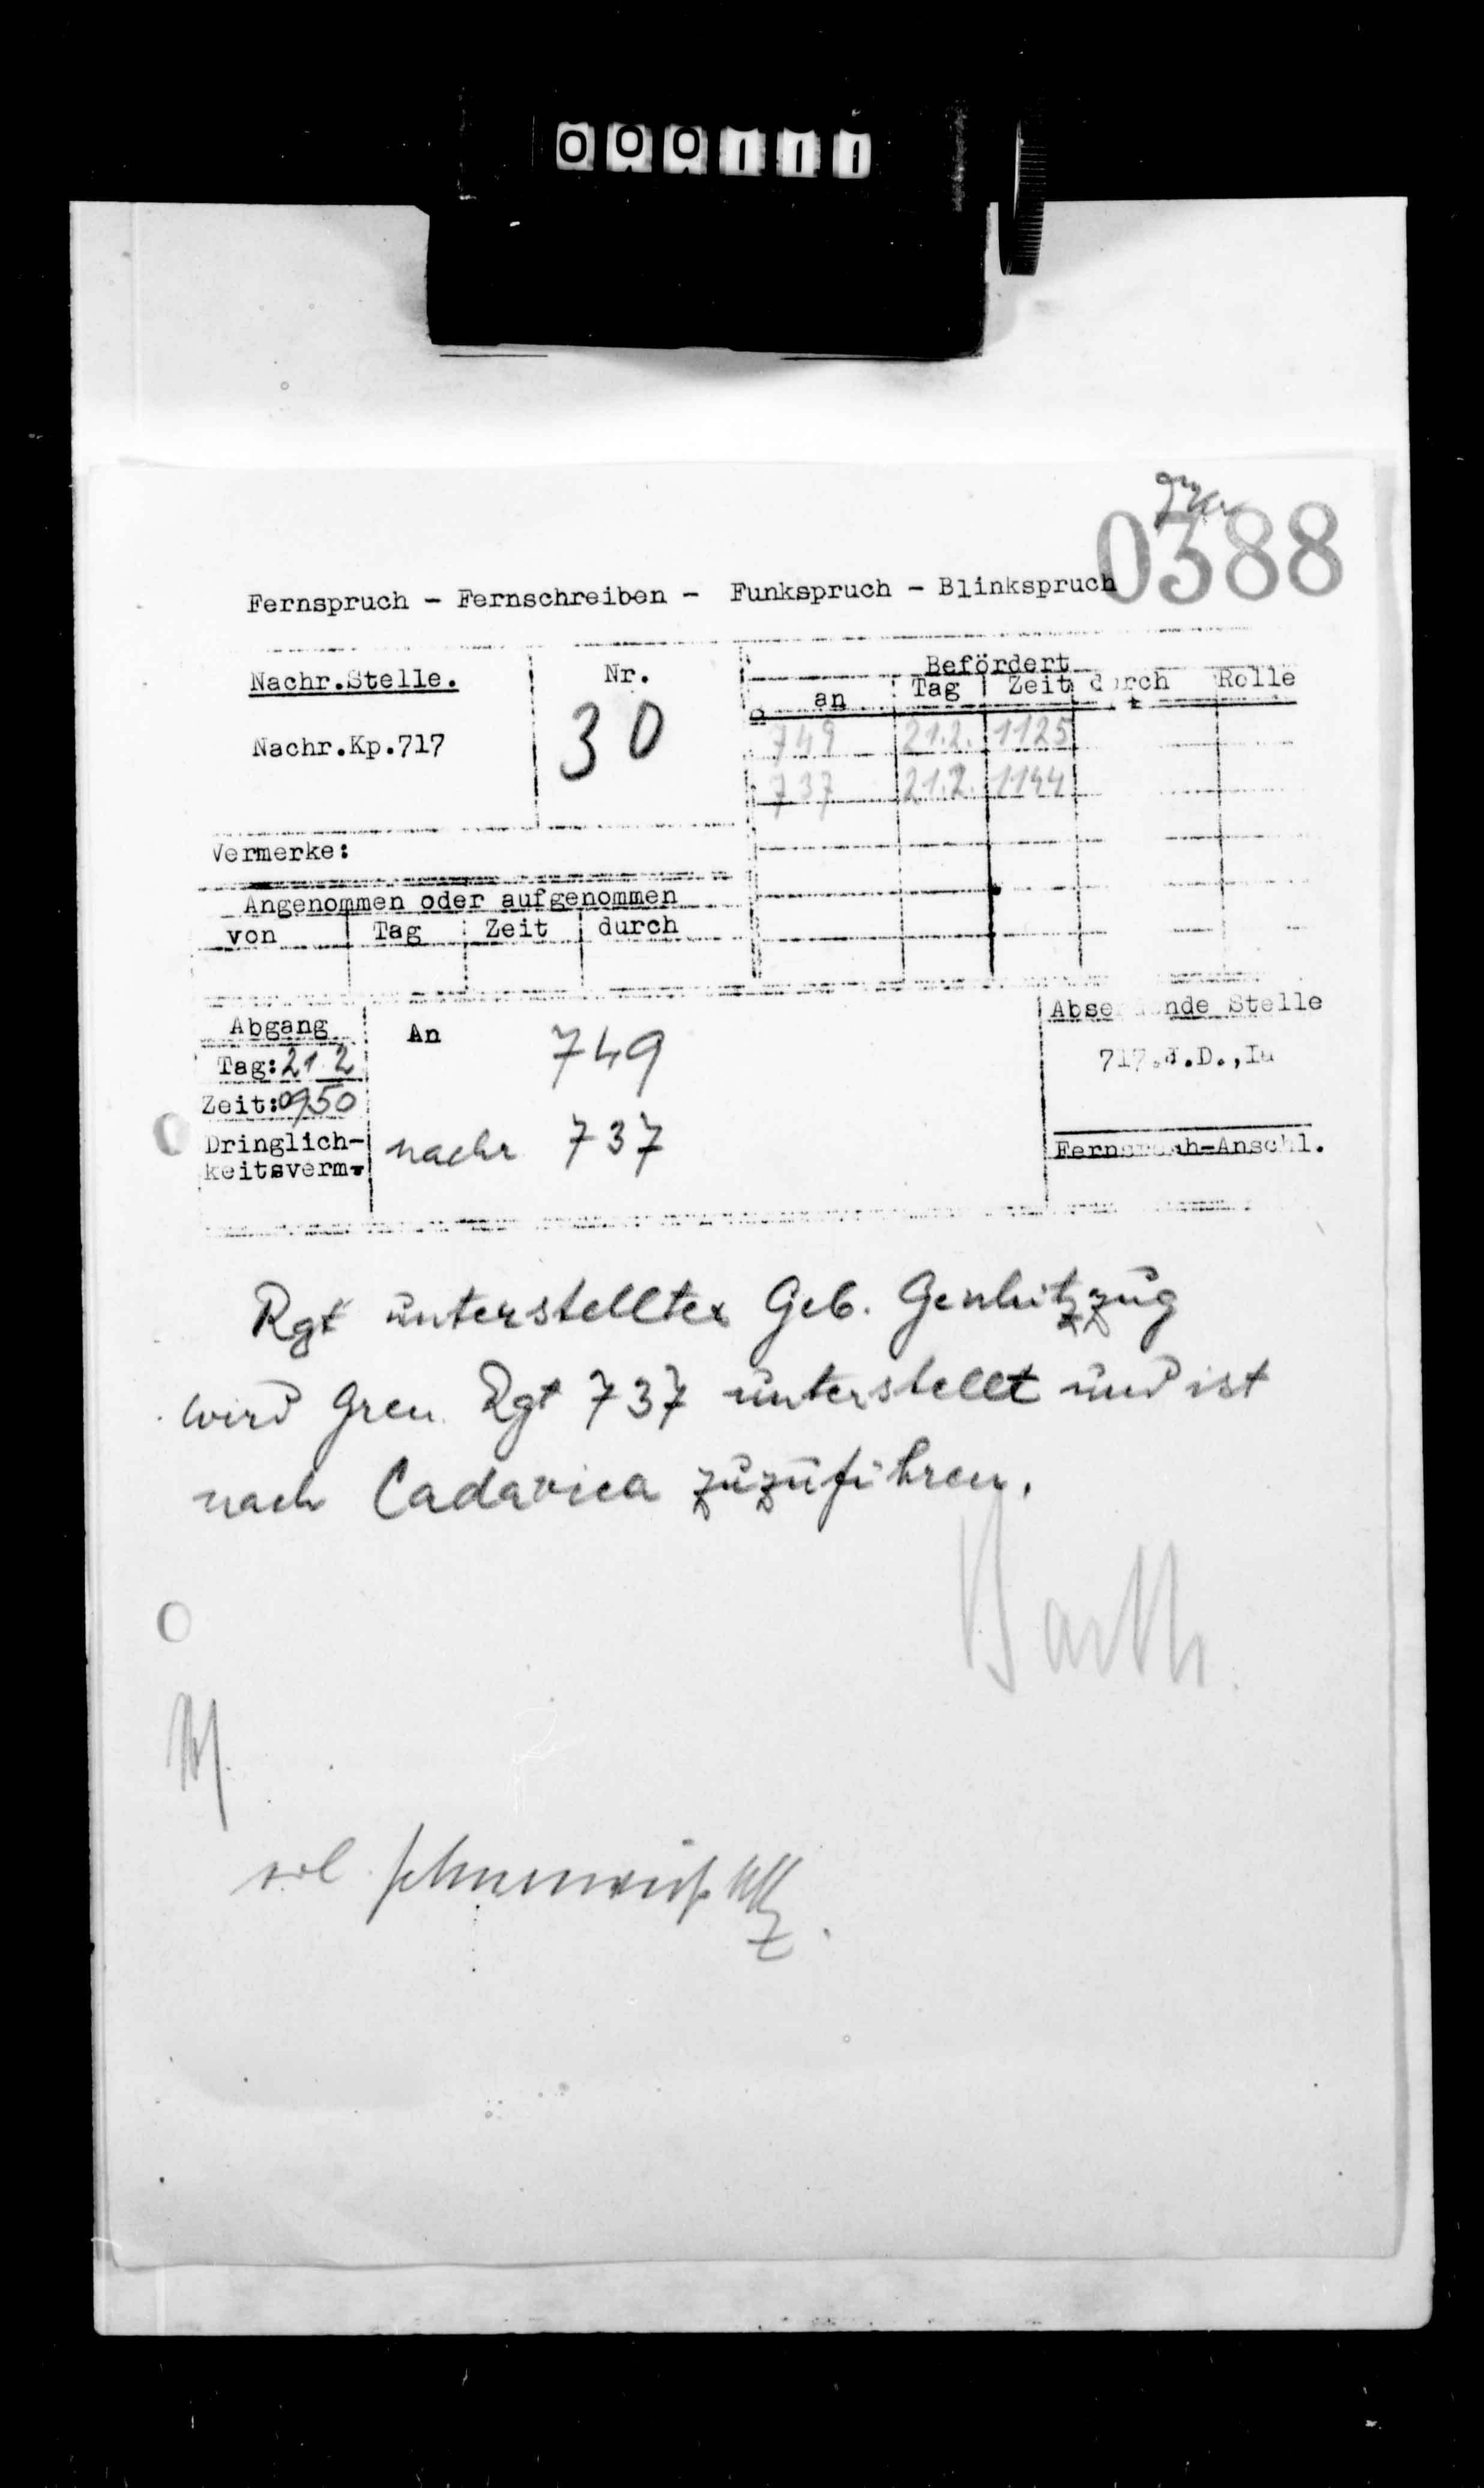 000111
0388
Fernspruch - Fernschreiben - Funkspruch - Blinkspruch
Nachr.Stelle.
Nr.
Befördert
an Tag Zeit durch Rolle
Nachr.Kp.717
30
749 21.2. 1125
737 21.2. 1144
Vermerke:
Angenommen oder aufgenommen
von Tag Zeit durch
Abgang
An
749
Absendende Stelle
Tag: 21 2
717.J.D., Ia
Zeit: 0950
Dringlich-
keitsverm.
nachr 737
Fernspruch-Anschl.
Rgt unterstellter Geb. Geschützzug
wird Gren. Rgt 737 unterstellt und ist
nach Cadavica zuzuführen.
Barth.